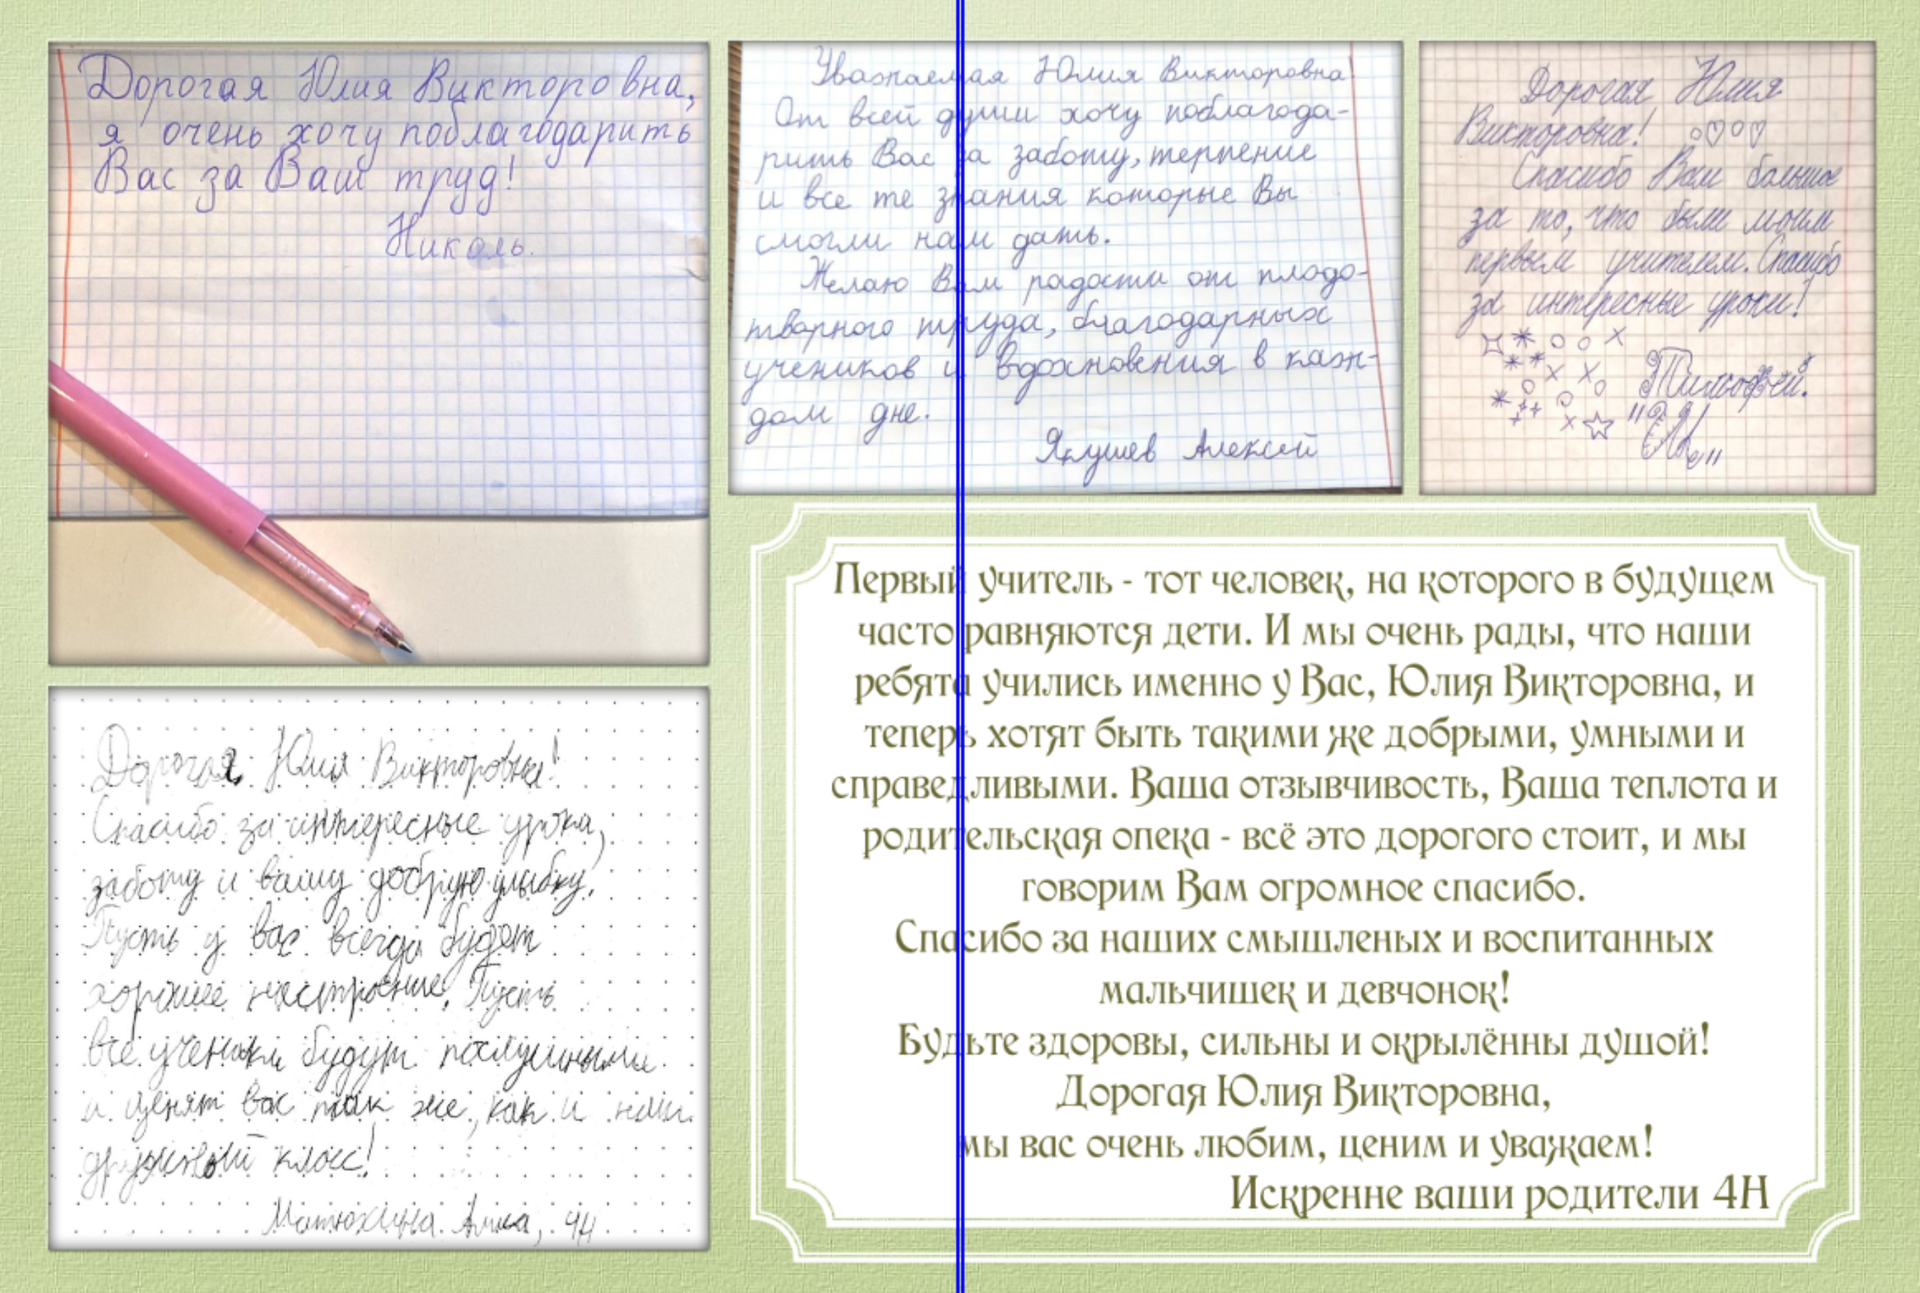 Дорогая Юлия Викторовна,
я очень хочу поблагодарить
Вас за Ваш труд!
Николь.
Уважаемая Юлия Викторовна
От всей души хочу поблагода-
рить Вас за заботу, терпение
и все те знания которые Вы
смогли нам дать.
Желаю Вам радости от плодо-
творного труда, благодарных
учеников и вдохновения в каж-
дом дне.
Якушев Алексей
Дорогая Юлия
Викторовна!
Спасибо Вам большое
за то, что были моим
первым учителем. Спасибо
за интересные уроки!
Тимофей.
Дорогая Юлия Викторовна!
Спасибо за интересные урока,
заботу и вашу добрую улыбку.
Пусть у вас всегда будет
хорошее настроение. Пусть
все ученики будут послушными
и ценят вас так же, как и наш
дружный класс!
Матюхина Алиса, 4Н
Первый учитель - тот человек, на которого в будущем
часто равняются дети. И мы очень рады, что наши
ребята учились именно у Вас, Юлия Викторовна, и
теперь хотят быть такими же добрыми, умными и
справедливыми. Ваша отзывчивость, Ваша теплота и
родительская опека - всё это дорогого стоит, и мы
говорим Вам огромное спасибо.
Спасибо за наших смышленых и воспитанных
мальчишек и девчонок!
Будьте здоровы, сильны и окрылённы душой!
Дорогая Юлия Викторовна,
мы вас очень любим, ценим и уважаем!
Искренне ваши родители 4Н